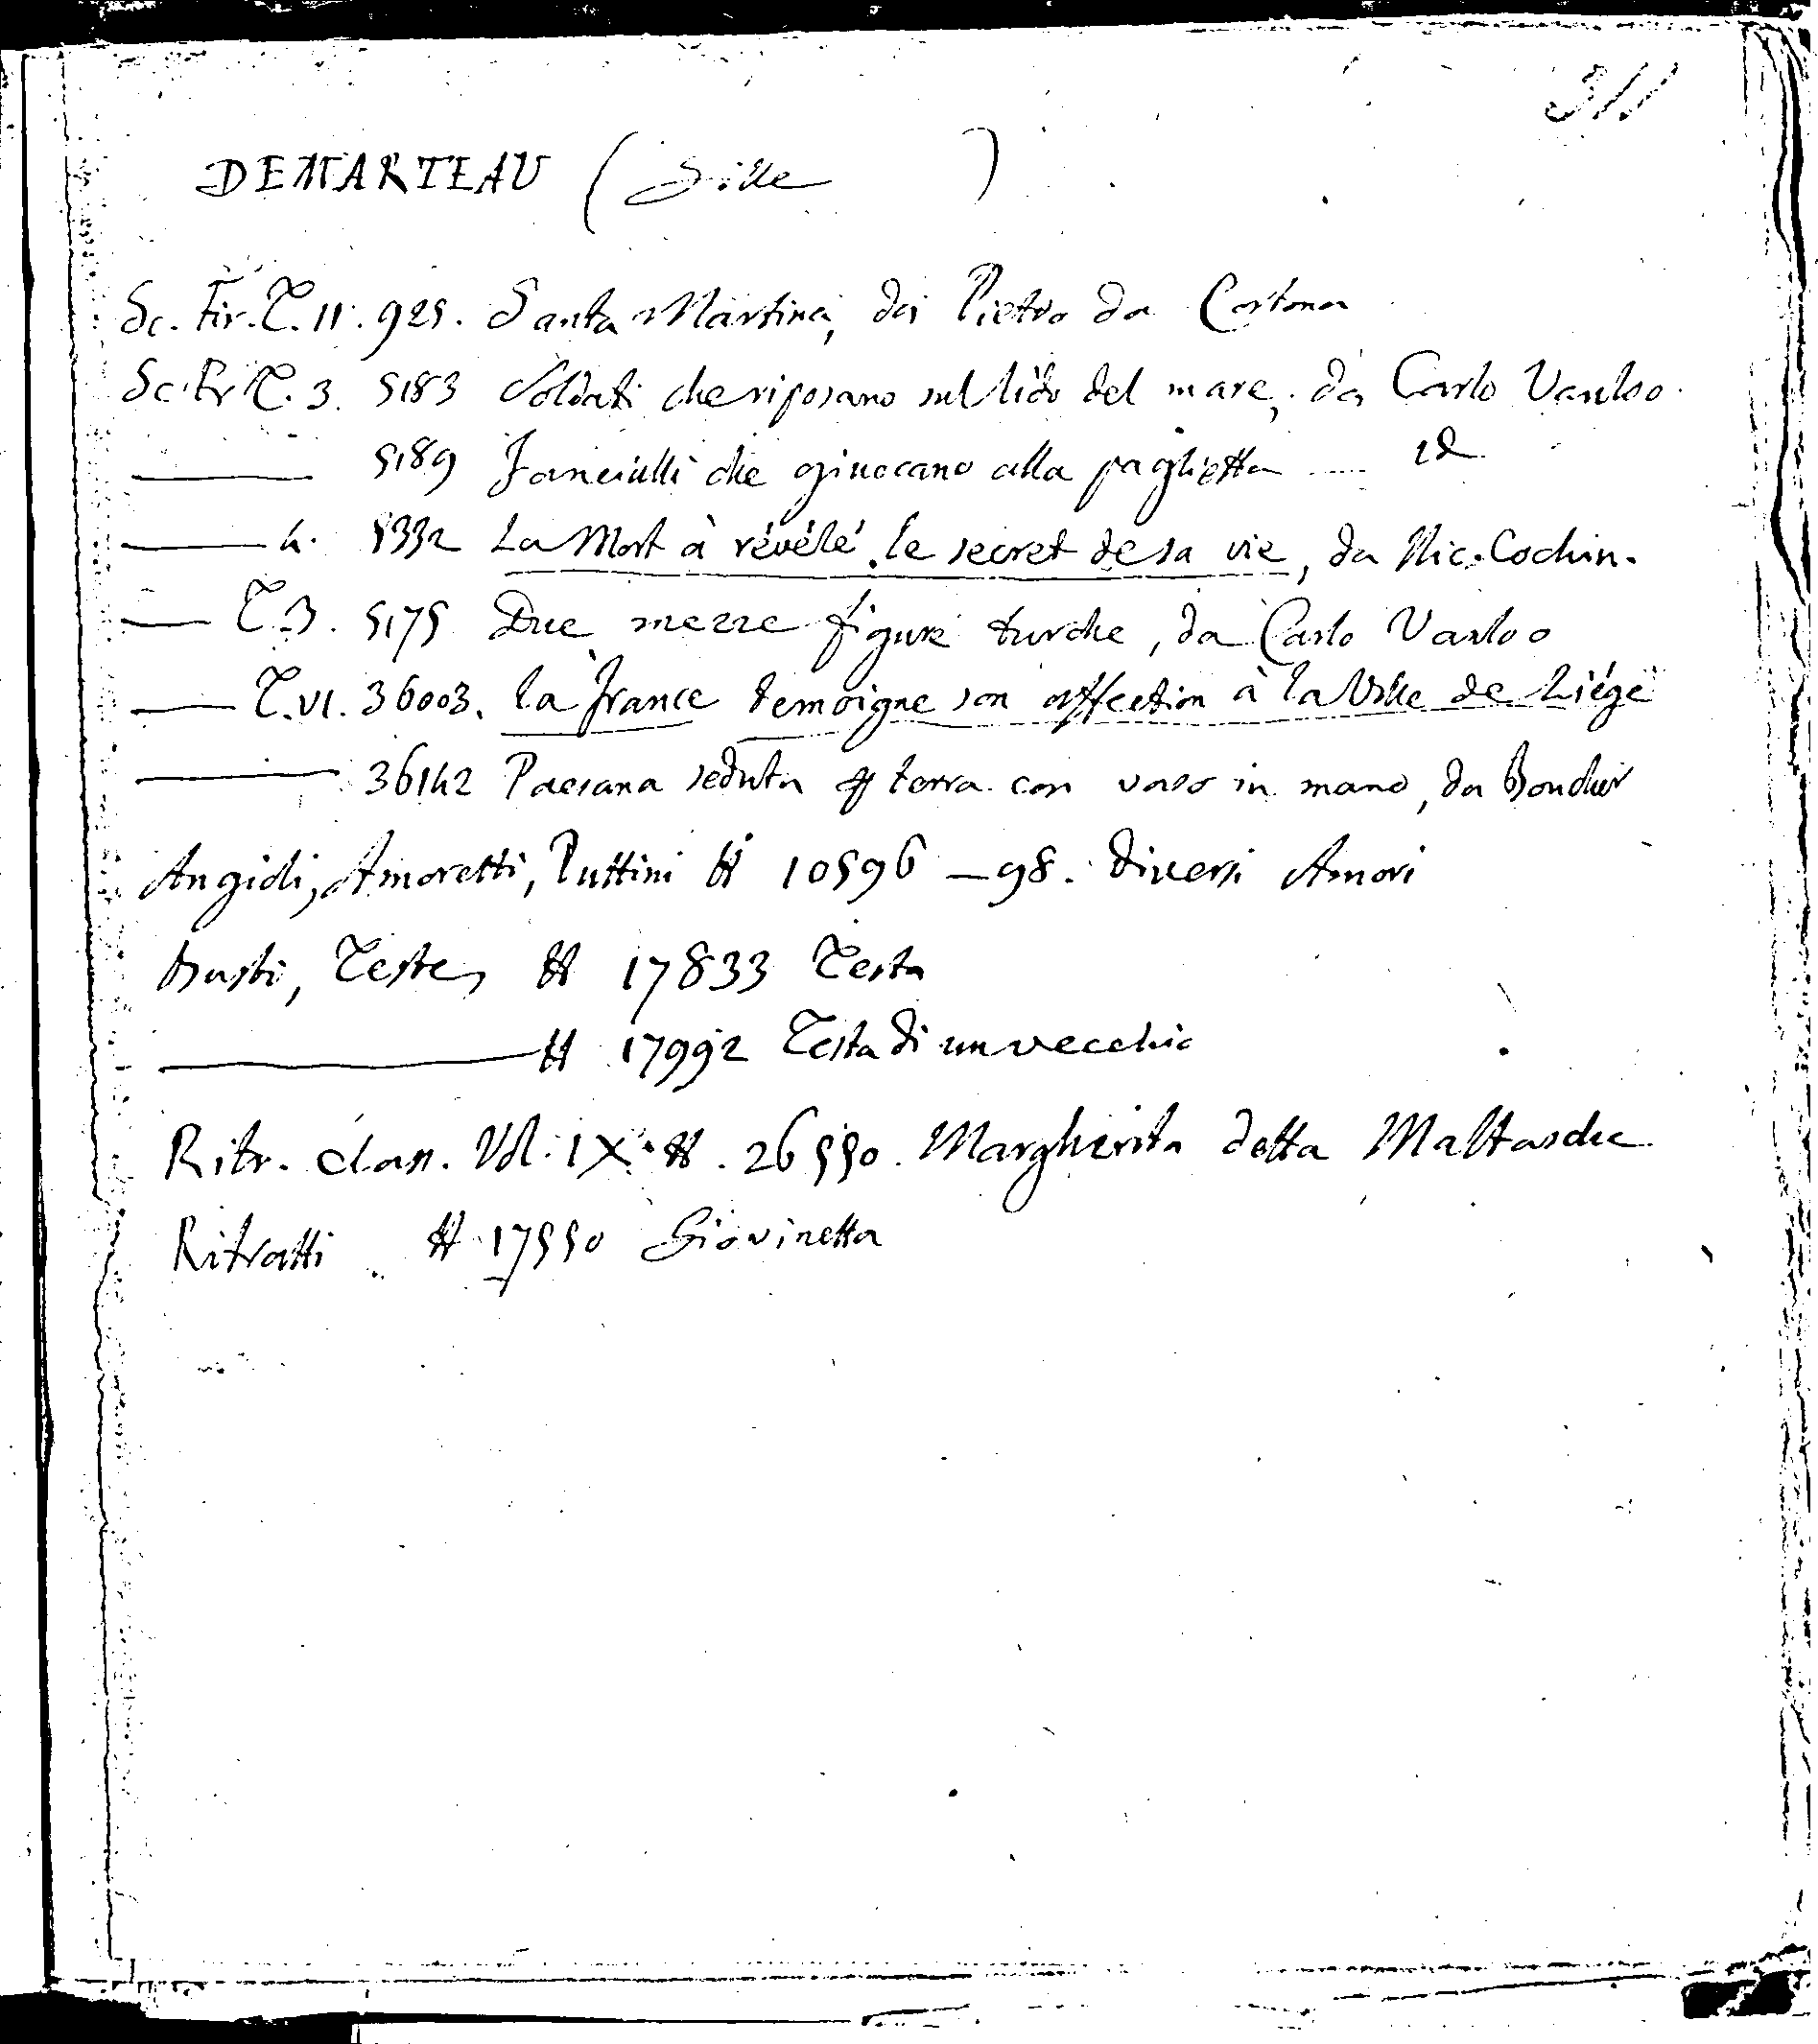 311
DEMARTEAU (Gille )
Sc. Fir. T. II. 925. Santa Martina, da Pietro da Cortona
Sc. Fr T. 3. 5183 Soldati che riposano sul lido del mare, da Carlo Vanloo.
——— 5189 Fanciulli che giuocano alla paglietta ..... id
——— 4. 5332 La Mort à révélé le secret de sa vie, da Nic. Cochin.
—— T. 3. 5175 Due mezze figure turche, da Carlo Vanloo
—— T. VI. 36003. la France temoigne son affection à la Ville de Liége
——— 36142 Paesana seduta a terra con vaso in mano, da Boucher
Angioli, Amoretti, Puttini # 10596 — 98. Diversi Amori
Busti, Teste, # 17833 Testa
——— # 17992 Testa di un vecchio
Ritr. class. Vol. IX. # . 26550. Margherita detta Maltasche
Ritratti # 17550 Giovinetta